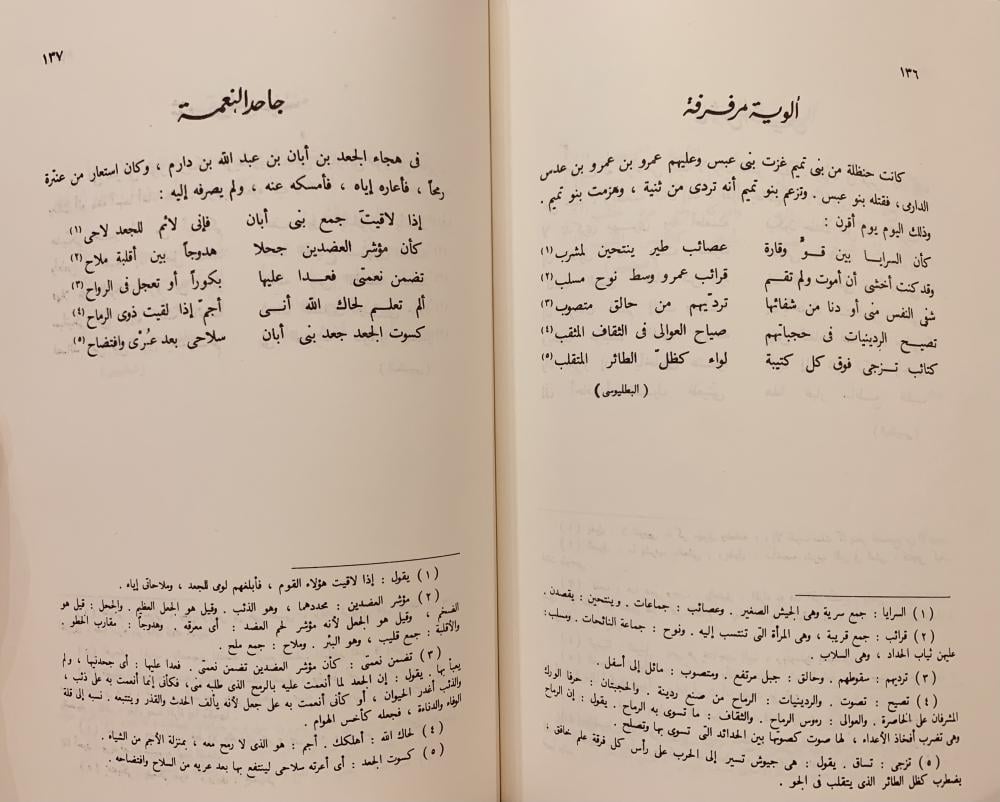 ١٣٦
ألوية مرفرفة
كانت حنظلة من بنى تميم غزت بنى عبس وعليهم عمرو بن عمرو بن عدس
الدارمى، فقتله بنو عبس. وتزعم بنو تميم أنه تردى من ثنية، وهزمت بنو تميم.
وذلك اليوم يوم أقرن:
كأن السرايا بين قَوٍّ وقارة عصائب طير ينتحين لمشرب (١)
وقد كنت أخشى أن أموت ولم تقم قرائب عمرو وسط نوح مسلب (٢)
شفى النفس منى أو دنا من شفائها ترديهم من حالق متصوب (٣)
تصيح الردينيات فى حجباتهم صياح العوالى فى الثقاف المثقب (٤)
كتائب تزجى فوق كل كتيبة لواء كظلّ الطائر المتقلب (٥)
(البطليوسى)
(١) السرايا: جمع سرية وهى الجيش الصغير. وعصائب: جماعات. وينتحين: يقصدن.
(٢) قرائب: جمع قريبة، وهى المرأة التى تنتسب إليه. ونوح: جماعة النائحات. ومسلب:
عليهن ثياب الحداد، وهى السلاب.
(٣) ترديهم: سقوطهم. وحالق: جبل مرتفع. ومتصوب: مائل إلى أسفل.
(٤) تصيح: تصوت. والردينيات: الرماح من صنع ردينة. والحجبتان: حرفا الورك
المشرفان على الخاصرة. والعوالى: رءوس الرماح. والثقاف: ما تسوى به الرماح. يقول: إن الرماح
وهى تضرب أفخاذ الأعداء، لها صوت كصوتها بين الحدائد التى تسوى بها وتصلح.
(٥) تزجى: تساق. يقول: هى جيوش تسير إلى الحرب على رأس كل فرقة علم خافق،
يضطرب كظل الطائر الذى يتقلب فى الجو.
١٣٧
جاحد النعمة
فى هجاء الجعد بن أبان بن عبد الله بن دارم، وكان استعار من عنترة
رمحاً، فأعاره إياه، فأمسكه عنه، ولم يصرفه إليه:
إذا لاقيت جمع بنى أبان فإنى لائم للجعد لاحى (١)
كأن مؤشر العضدين جحلا هدوجاً بين أقلبة ملاح (٢)
تضمن نعمتى فعدا عليها بكوراً أو تعجل فى الرواح (٣)
ألم تعلم لحاك الله أنى أجمّ إذا لقيت ذوى الرماح (٤)
كسوت الجعد جعد بنى أبان سلاحى بعد عُرْى وافتضاح (٥)
(١) يقول: إذا لاقيت هؤلاء القوم، فأبلغهم لومى للجعد، وملاحاتى إياه.
(٢) مؤشر العضدين: محددهما، وهو الذئب. وقيل هو الجعل العظيم. والجحل: قيل هو
الضخم، وقيل هو الجعل لأنه مؤشر لحم العضد: أى معرقه. وهدوجاً: مقارب الخطو.
والأقلبة: جمع قليب، وهو البئر. وملاح: جمع ملح.
(٣) تضمن نعمتى: كأن مؤشر العضدين تضمن نعمتى. فعدا عليها: أى جحدنيها، ولم
يعبأ بها. يقول: إن الجعد لما أنعمت عليه بالرمح الذى طلبه منى، فكأنى إنما أنعمت به على ذئب،
والذئب أغدر الحيوان، أو كأنى أنعمت به على جعل لأنه يألف الحدث والقذر ويتتبعه. نسبه إلى قلة
الوفاء والدناءة، فجعله كأخس الهوام.
(٤) لحاك الله: أهلكك. أجم: هو الذى لا رمح معه، بمنزلة الأجم من الشياه.
(٥) كسوت الجعد: أى أعرته سلاحى لينتفع بها بعد عريه من السلاح وافتضاحه.